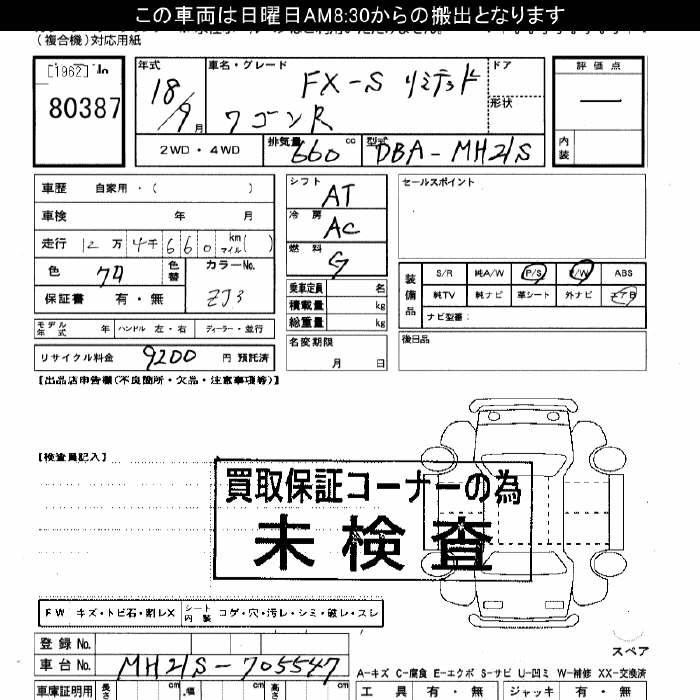 この車両は日曜日AM8:30からの搬出となります
(複合機)対応用紙
[1962]
80387
年式 18/9 月
車名・グレード FX-S リミテッド
ワゴンR
ドア
形状
評価点
―
内装
2WD・4WD
排気量 660 cc
型式 DBA-MH21S
車歴 自家用・( )
車検 年 月
走行 12万4千660 km マイル( )
色
色替
カラーNo. ZJ3
保証書 有・無
シフト AT
冷房 AC
燃料 G
乗車定員 名
積載量 kg
総重量 kg
名変期限
月 日
セールスポイント
装備品
S/R 純A/W P/S P/W ABS
純TV 純ナビ 革シート 外ナビ エアB
ナビ型番:
後日品
モデル年式 年 ハンドル 左・右 ディーラー・並行
リサイクル料金 9200 円 預託済
【出品店申告欄(不良箇所・欠品・注意事項等)】
【検査員記入】
買取保証コーナーの為
未検査
FW キズ・トビ石・割レX シート内装 コゲ・穴・汚レ・シミ・破レ・スレ
スペア
登録No.
車台No. MH21S-705547
A-キズ C-腐食 E-エクボ S-サビ U-凹ミ W-補修 XX-交換済
車庫証明用 長さ cm 幅 cm 高さ cm
工具 有・無 ジャッキ 有・無